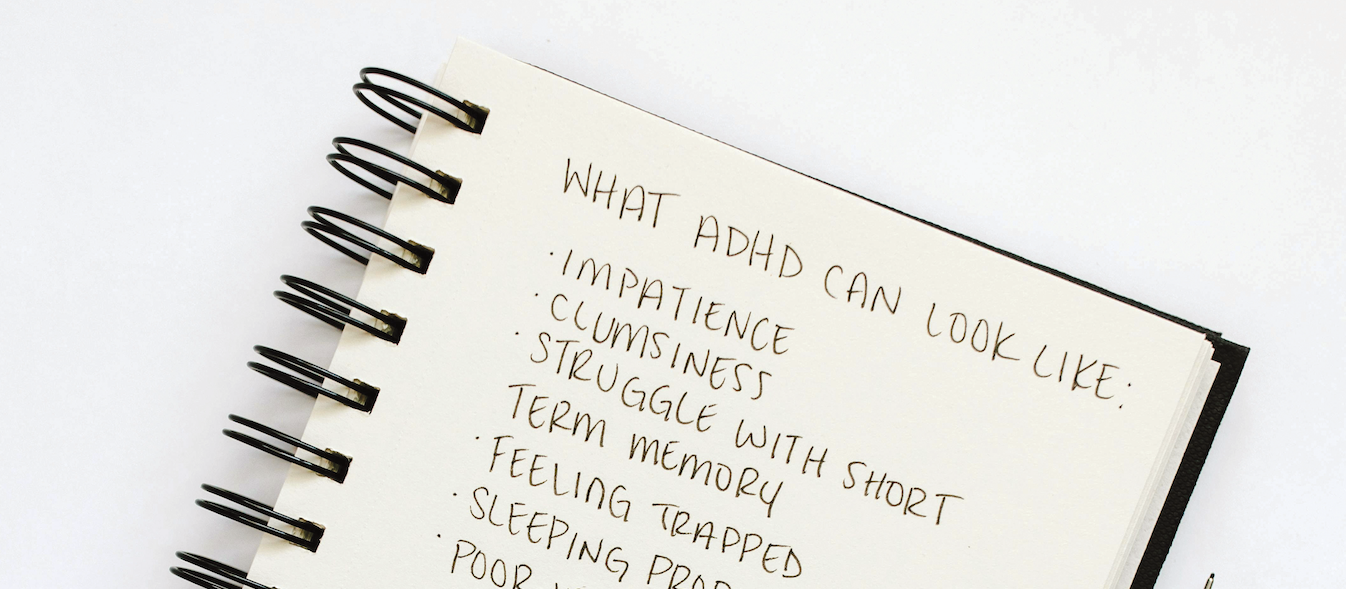 WHAT ADHD CAN LOOK LIKE:
· IMPATIENCE
· CLUMSINESS
· STRUGGLE WITH SHORT
TERM MEMORY
· FEELING TRAPPED
· SLEEPING
· POOR